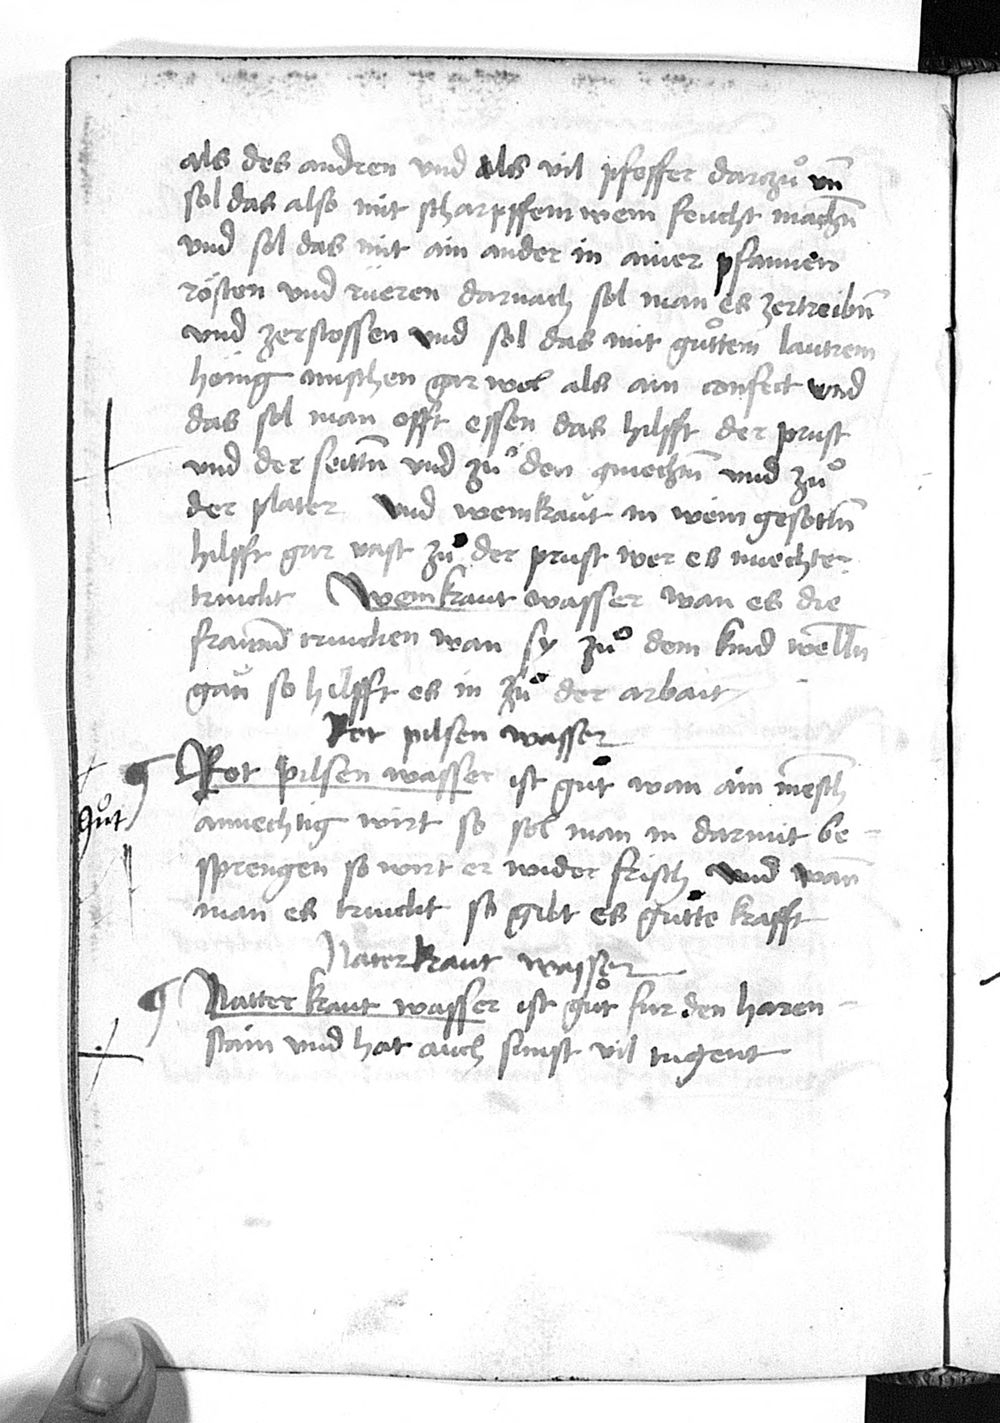 als des andren und als vil pfeffer darzuͦ un̄
sol das also mit scharpffem wein feucht mach̄n
und sol das mit ain ander in ainer pfannen
rösten und rüeren darnach sol man es zertreibn̄
und zerstossen und sol das mit guͦttem lautrem
hönig mischen gar wol als ain confect und
das sol man offt essen das hilfft der prust
und der seittn̄ und zuͦ den gmechtn̄ und zuͦ
der plater und weinkraut in wein gesottn̄
hilfft gar vast zuͦ der prust wer es nuechter
trinckt Weinkraut wasser wan es die
frawen̄ trincken wan sy zuͦ dem kind welln̄
gan so hilfft es in zuͦ der arbait
Rot pilsen wasser
Rot pilsen wasser ist guͦt wan ain mensch
guͦt
amechtig wirt so sol man in darmit be-
sprengen so wirt er wider frisch und wan̄
man es trinckt so gibt es guͦtte krafft
Naterkraut wasser
Natterkraut wasser ist guͦt fur den haren-
stain und hat auch sunst vil tugent